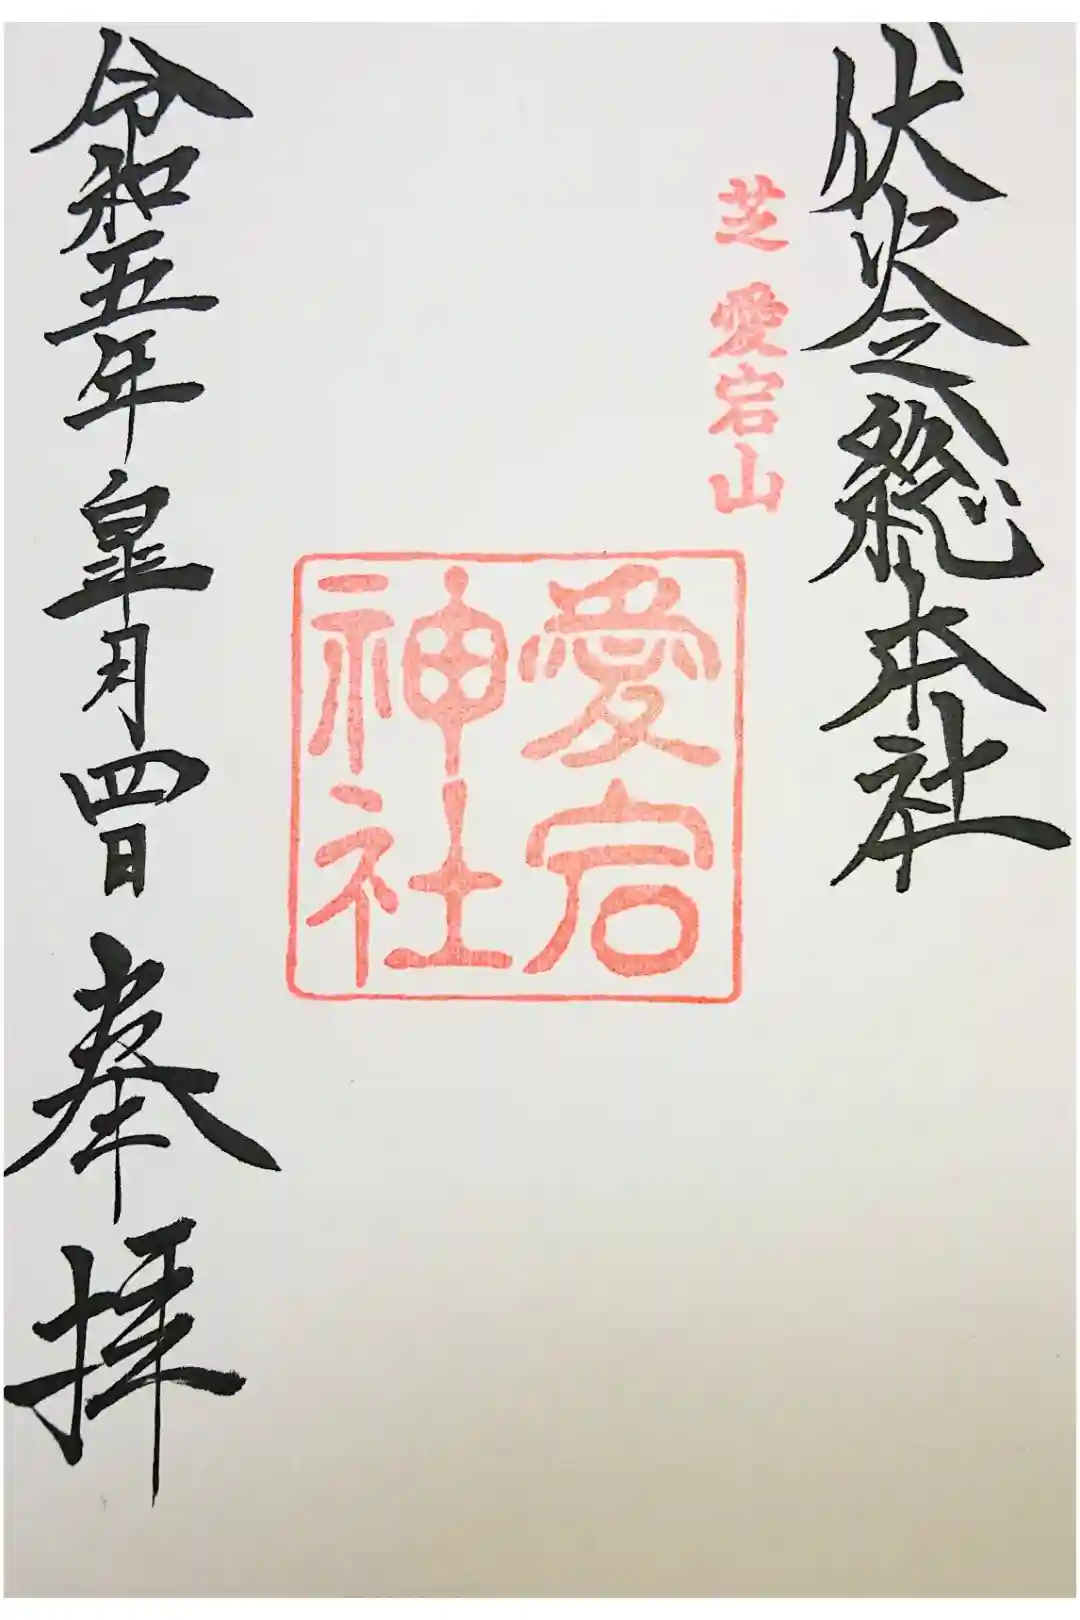 伏火之総本社
芝 愛宕山
愛宕
神社
令和五年皐月四日 奉拝